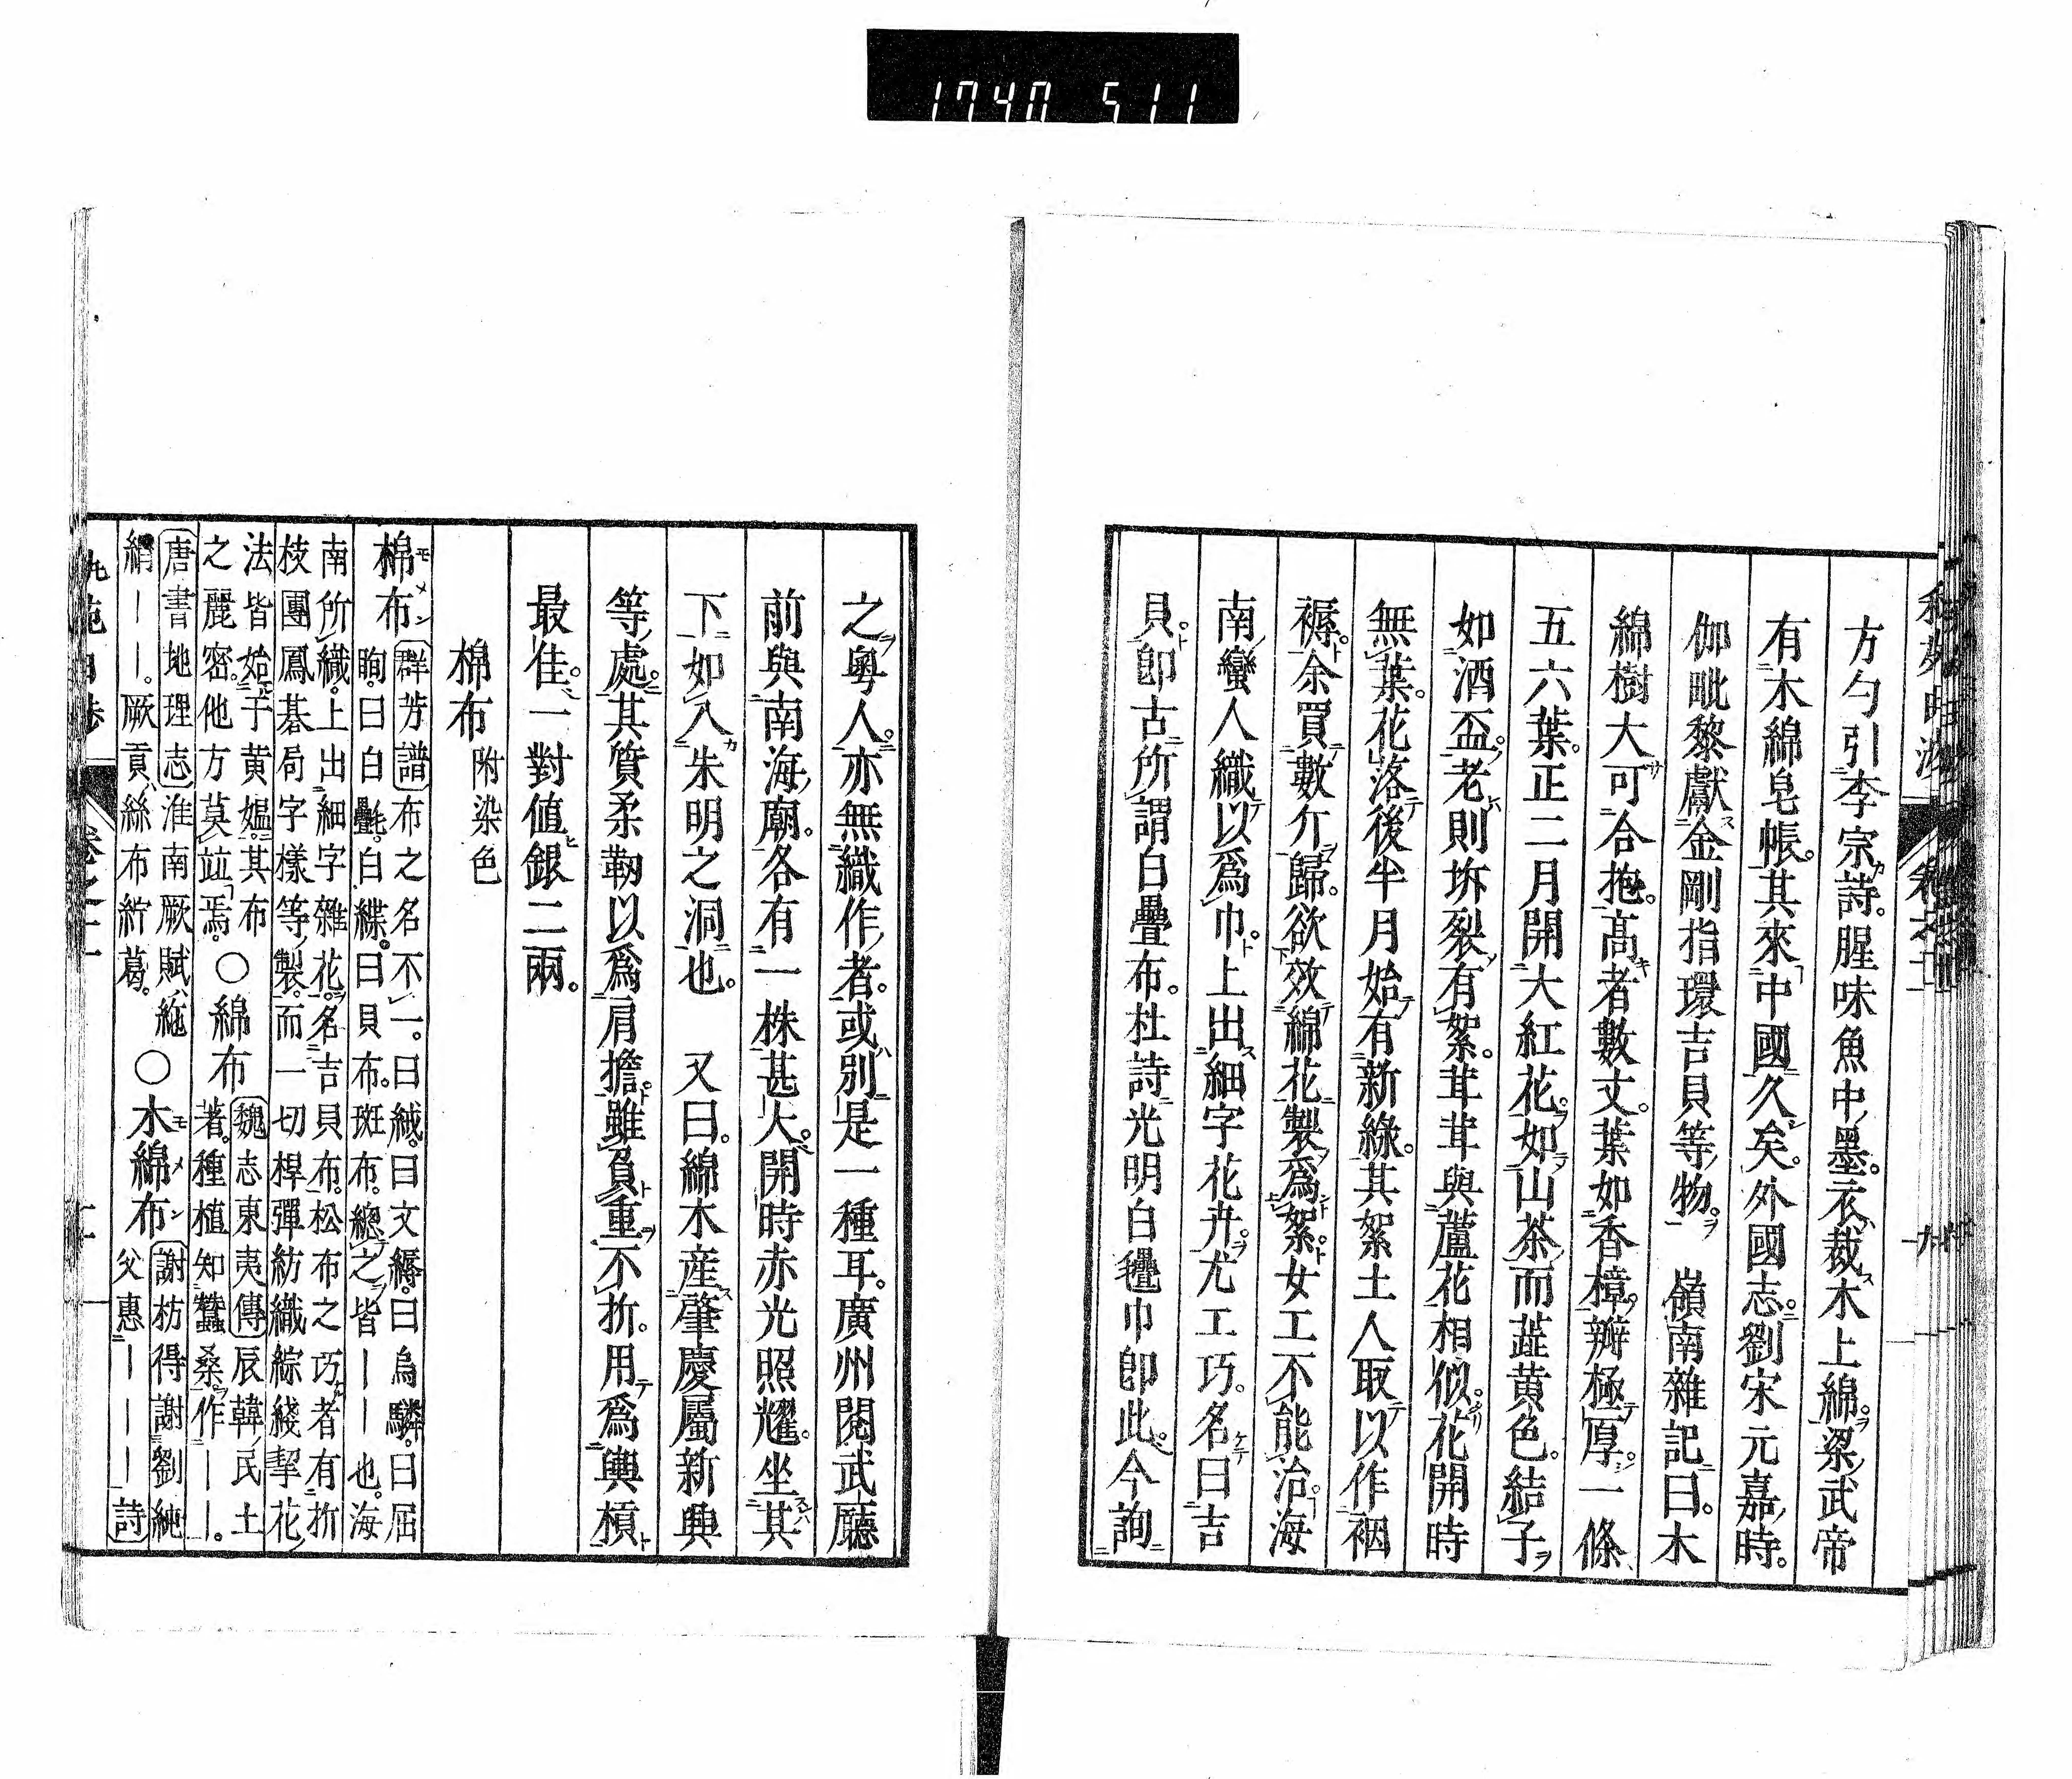 方勺引李宗詩。腥味魚中墨。衣裁木上綿。梁武帝
有木綿皂帳。其來中國久矣。外國志。劉宋元嘉時。
伽毗黎獻金剛指環吉貝等物。　嶺南雜記曰。木
綿樹大可合抱。高者數丈。葉如香樟。瓣極厚。一條
五六葉。正二月開大紅花。如山茶而蕋黃色。結子
如酒盃。老則坼裂有絮。茸茸與蘆花相似。花開時
無葉。花落後半月始有新綠。其絮土人取以作裀
褥。余買數斤歸。欲效綿花製爲絮。女工不能治。海
南蠻人織以爲巾。上出細字花卉。尤工巧。名曰吉
貝。卽古所謂白疊布。杜詩光明白氎巾卽此。今詢
之粤人。亦無織作者。或別是一種耳。廣州閱武廳
前與南海廟。各有一株甚大。開時赤光照耀。坐其
下如入朱明之洞也。　又曰。綿木産肇慶屬新興
等處。其質柔韌以爲肩擔。雖負重不折。用爲輿槓
最佳。一對値銀二兩。
棉布 附染色
棉布モメン 群芳譜 布之名不一。曰緎。曰文縟。曰烏驎。曰屈
眴。曰白㲲。白緤。曰貝布。斑布。總之皆——也。海
南所織。上出細字雜花。名吉貝布。松布之巧者有折
枝團鳳棊局字樣等製。而一切捍彈紡織綜綫挈花
法皆始于黃媼。其布
之麗密。他方莫竝焉。○綿布 魏志東夷傳 辰韓民土
著。種植知蠶桑作——。
唐書地理志 淮南厥賦絁
絹——。厥貢絲布紵葛。○木綿布モメン 謝枋得謝劉純
父惠———詩
1740 511